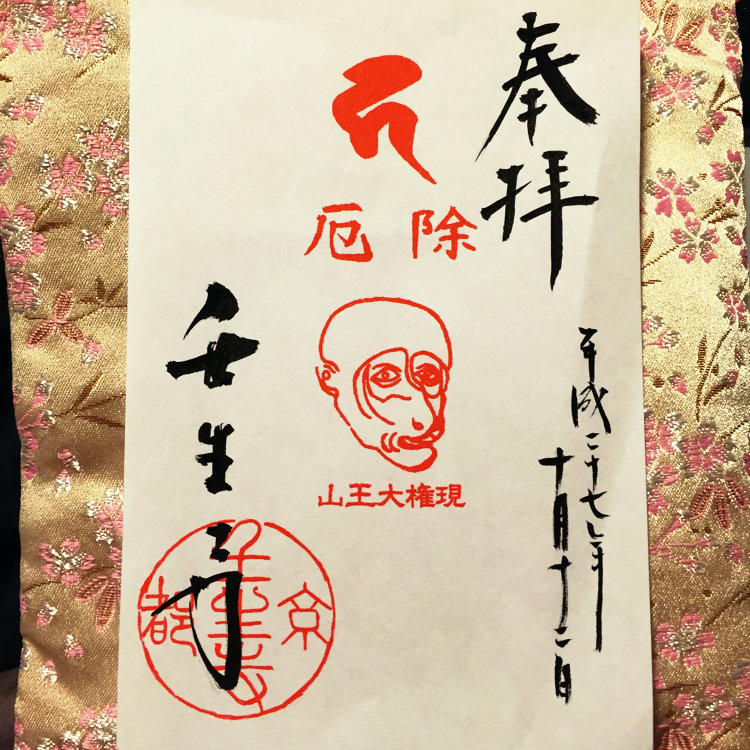 奉拝
平成二十七年
十月十二日
厄除
山王大権現
壬生寺
京都
壬生寺